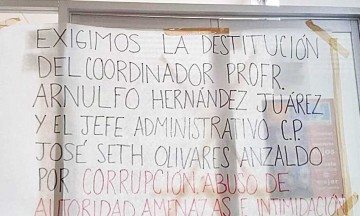 EXIGIMOS LA DESTITUCIÓN
DEL COORDINADOR PROFR.
ARNULFO HERNÁNDEZ JUÁREZ
Y EL JEFE ADMINISTRATIVO C.P.
JOSÉ SETH OLIVARES ANZALDO
POR CORRUPCIÓN, ABUSO DE
AUTORIDAD, AMENAZAS E INTIMIDACIÓN